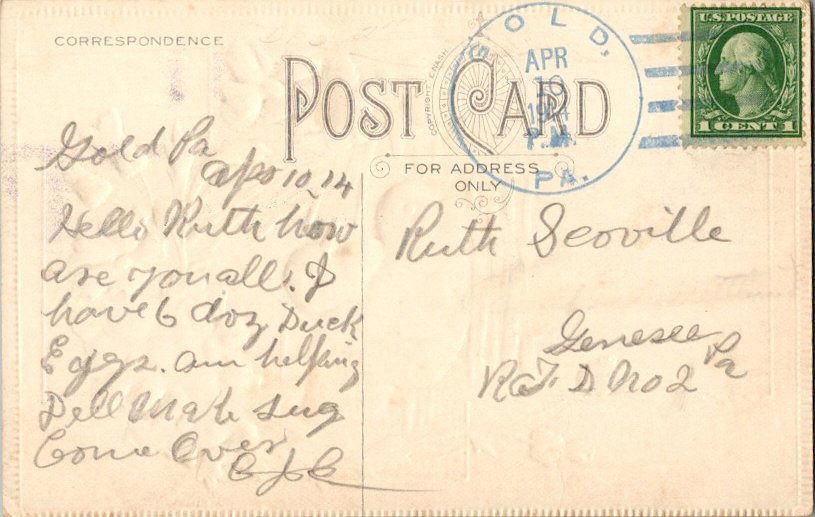 CORRESPONDENCE
POST CARD
FOR ADDRESS
ONLY
GOLD,
APR
10
1914
P.M.
PA.
U.S. POSTAGE
1 CENT 1
Gold Pa
Apr 10 14
Hello Ruth how
are you all. I
have 6 doz Duck
Eggs. am helping
Dell Mak Sug
Come Over
Ruth Scoville
Genesee Pa
R.F.D No 2